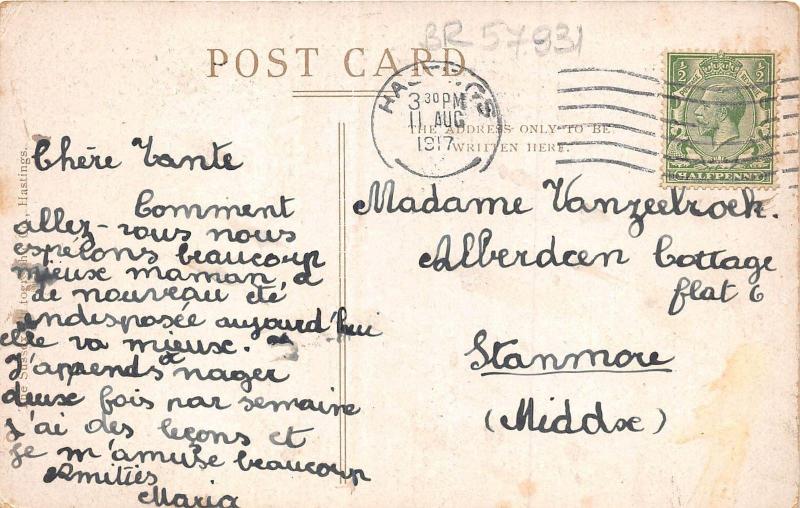 BR 57931
POST CARD
HASTINGS
3 30 PM
11 AUG
1917
THE ADDRESS ONLY TO BE
WRITTEN HERE.
½ ½
HALFPENNY
Hastings.
Chère Tante
Comment
allez-vous nous
espélons beaucoup
mieux maman a
de nouveau été
endisposée aujourd'hui
elle va mieux.
J'apprends à nager
deux fois par semaine
j'ai des leçons et
je m'amuse beaucoup
Amitiés
Maria
Madame Vanzeebroek.
Alberdeen Cottage
flat 6
Stanmore
(Middx)